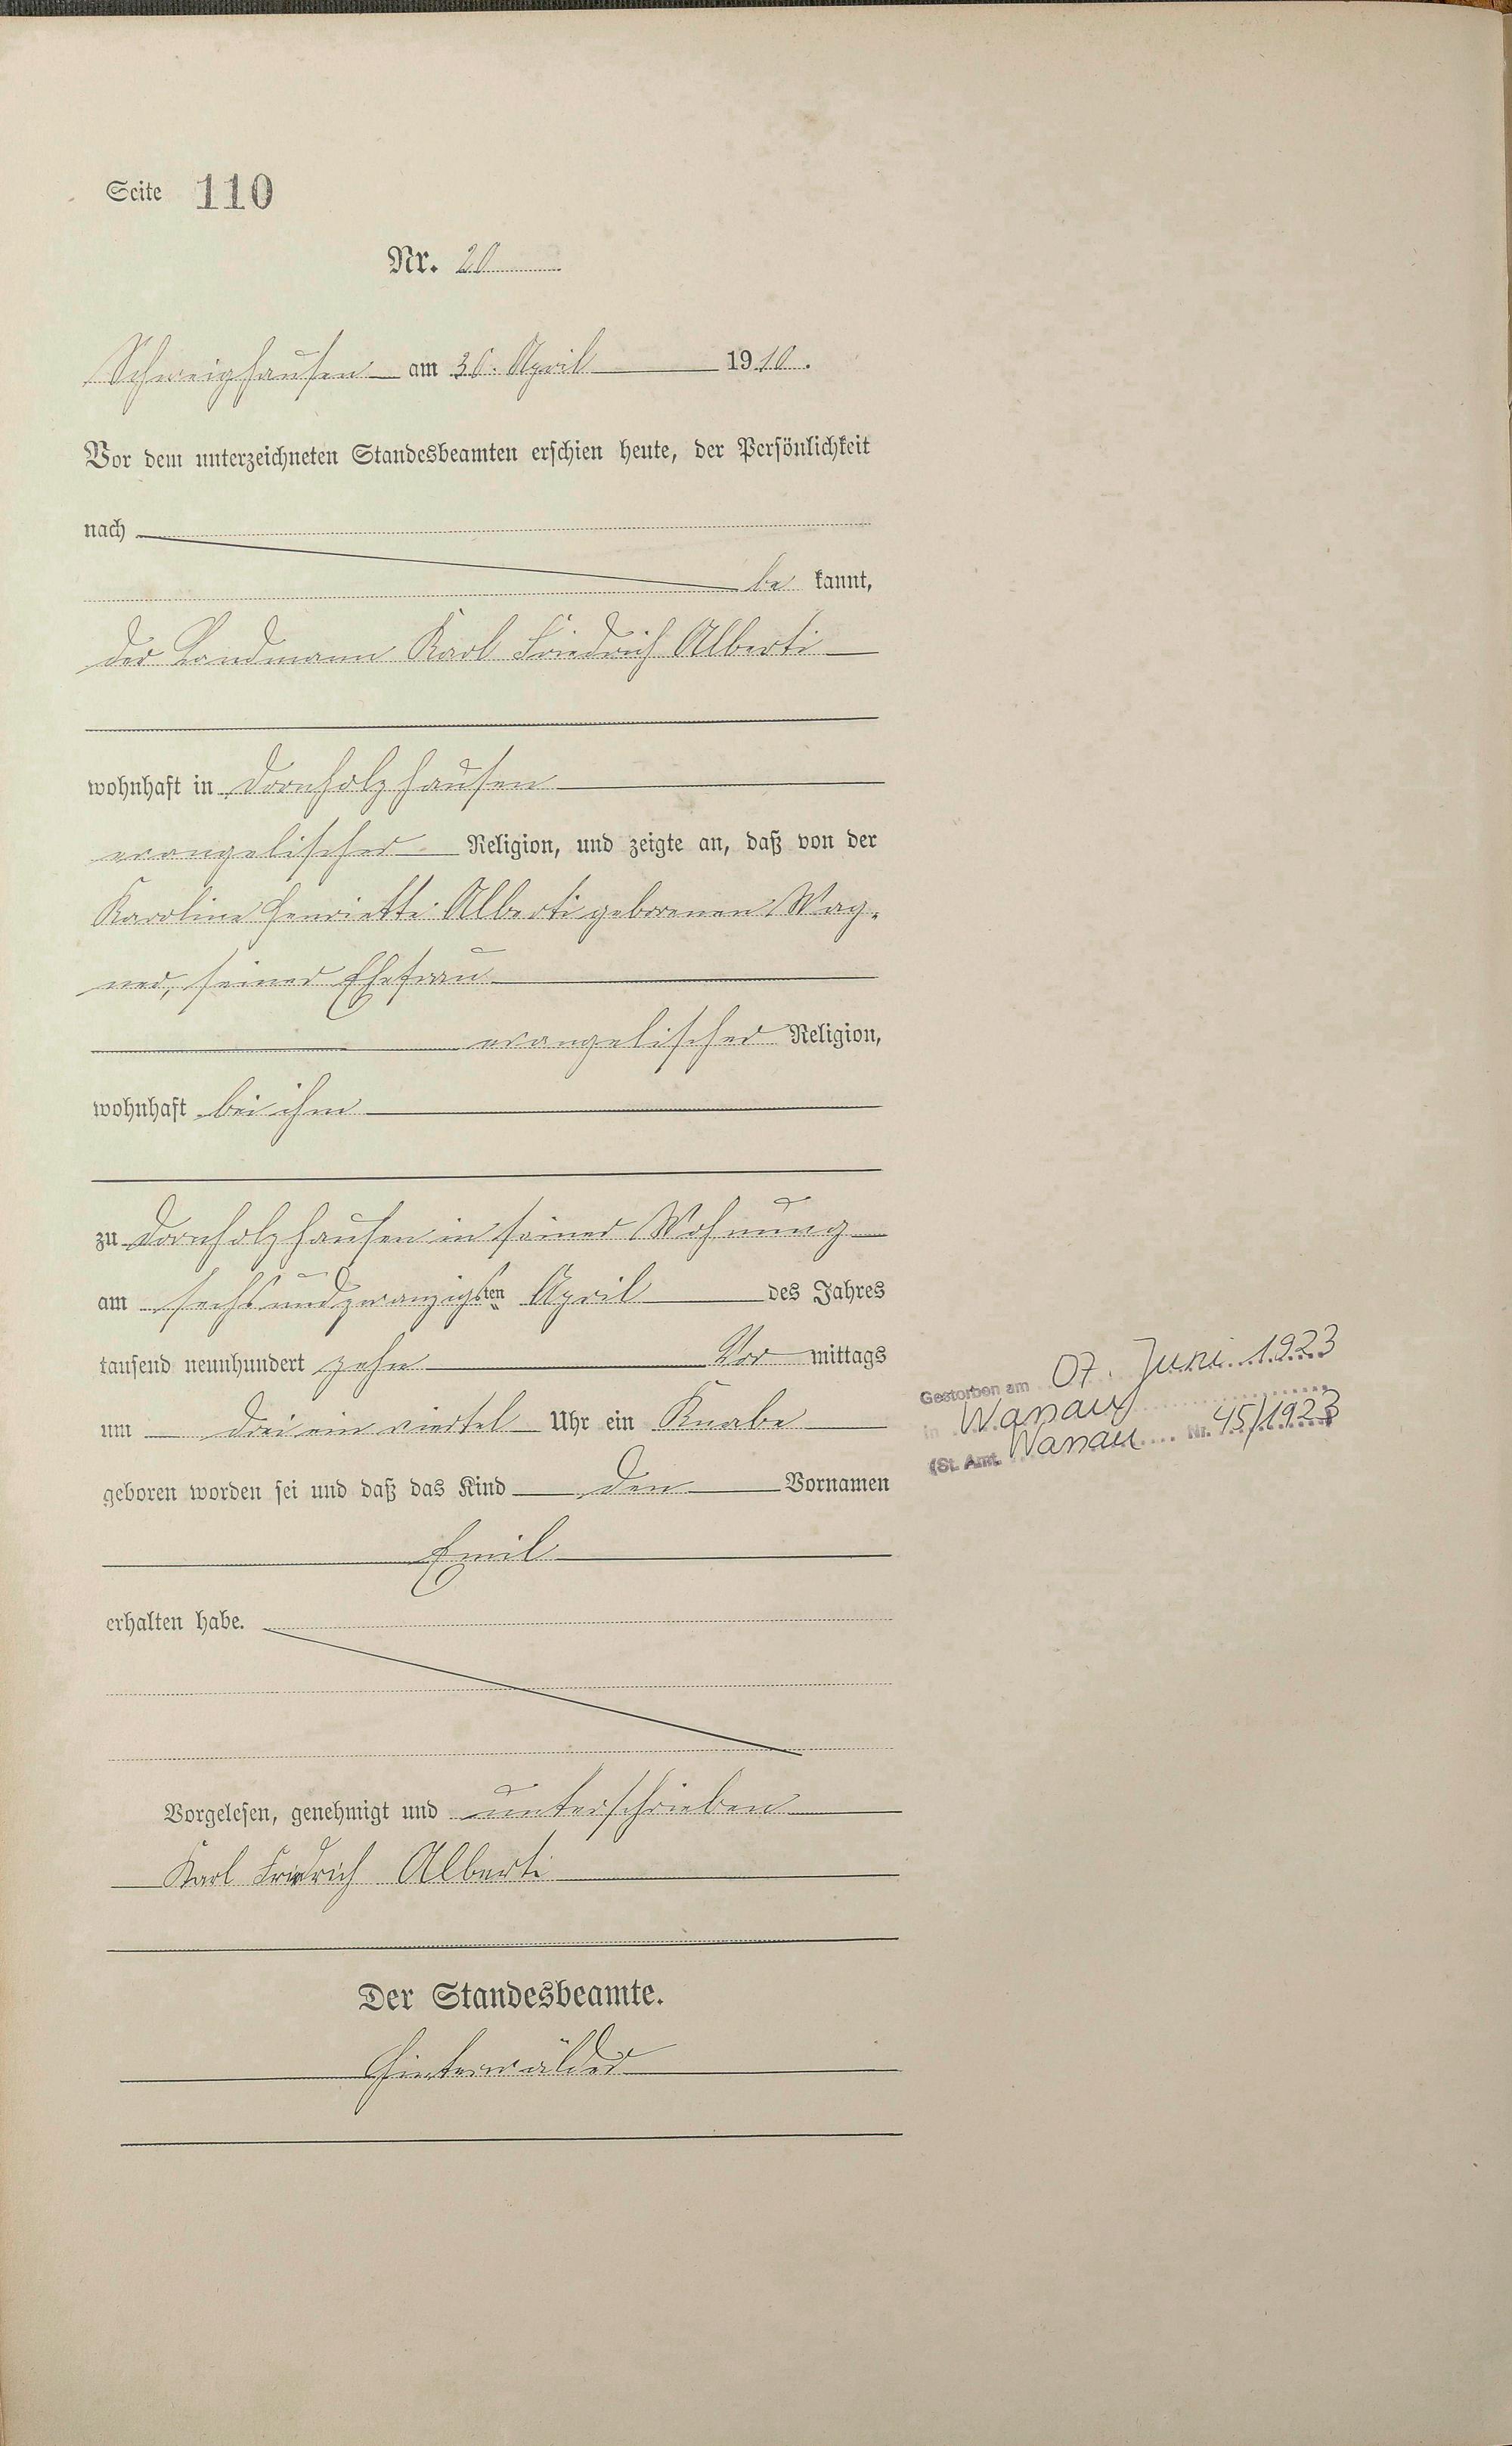 Seite 110
Nr. 20
Schweighausen am 30. April 1910.
Vor dem unterzeichneten Standesbeamten erschien heute, der Persönlichkeit
nach
be kannt,
der Landmann Karl Friedrich Alberti
wohnhaft in Dornholzhausen
evangelischer Religion, und zeigte an, daß von der
Karoline Henriette Alberti geborenen Wag-
ner, seiner Ehefrau
evangelischer Religion,
wohnhaft bei ihm
zu Dornholzhausen in seiner Wohnung
am sechsundzwanzigsten April des Jahres
tausend neunhundert zehn Vor mittags
um drei ein viertel Uhr ein Knabe
geboren worden sei und daß das Kind den Vornamen
Emil
erhalten habe.
Vorgelesen, genehmigt und unterschrieben
Karl Friedrich Alberti
Der Standesbeamte.
Hinterwälder
Gestorben am 07. Juni 1923
in Wanau
(St. Amt. Wanau Nr. 45/1923